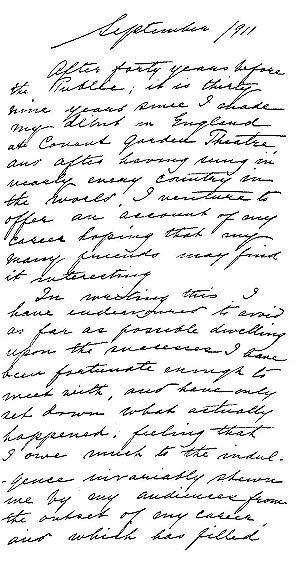 September 1911
After forty years before
the Public; it is thirty
nine years since I made
my début in England
at Covent Garden Theatre,
and after having sung in
nearly every country in
the world, I venture to
offer an account of my
career hoping that my
many friends may find
it interesting
In writing this I
have endeavoured to avoid
as far as possible dwelling
upon the successes I have
been fortunate enough to
meet with, and have only
set down what actually
happened, feeling that
I owe much to the indul-
-gence invariably shewn
me by my audiences from
the outset of my career,
and which has filled